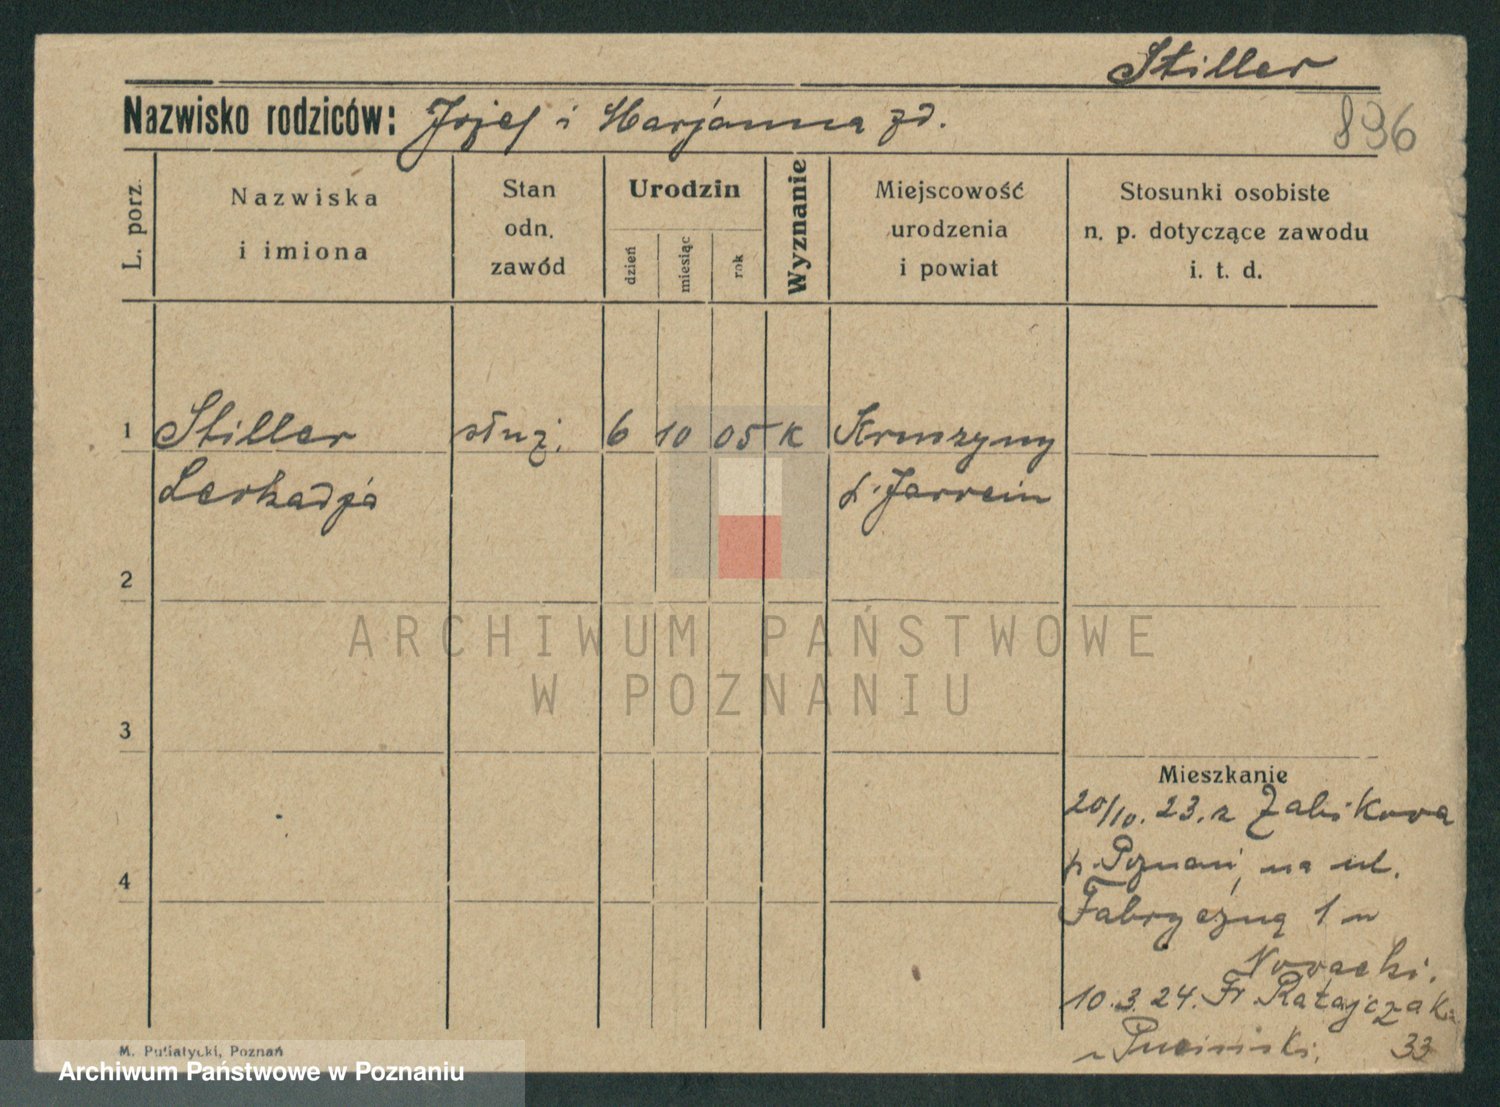 Stiller
Nazwisko rodziców: Józef i Marjanna zd.
896
L. porz.
Nazwiska
i imiona
Stan
odn.
zawód
Urodzin
dzień
miesiąc
rok
Wyznanie
Miejscowość
urodzenia
i powiat
Stosunki osobiste
n. p. dotyczące zawodu
i. t. d.
1 Stiller służ. 6 10 05 K
Leokadja
2
3
4
ARCHIWUM PAŃSTWOWE
W POZNANIU
Mieszkanie
20/10. 23. z Żabikowa
p. Poznań, na ul.
Fabryczną 1 u
10.3.24. Fr. Ratajczaka
33
M. Putiatycki, Poznań
Archiwum Państwowe w Poznaniu